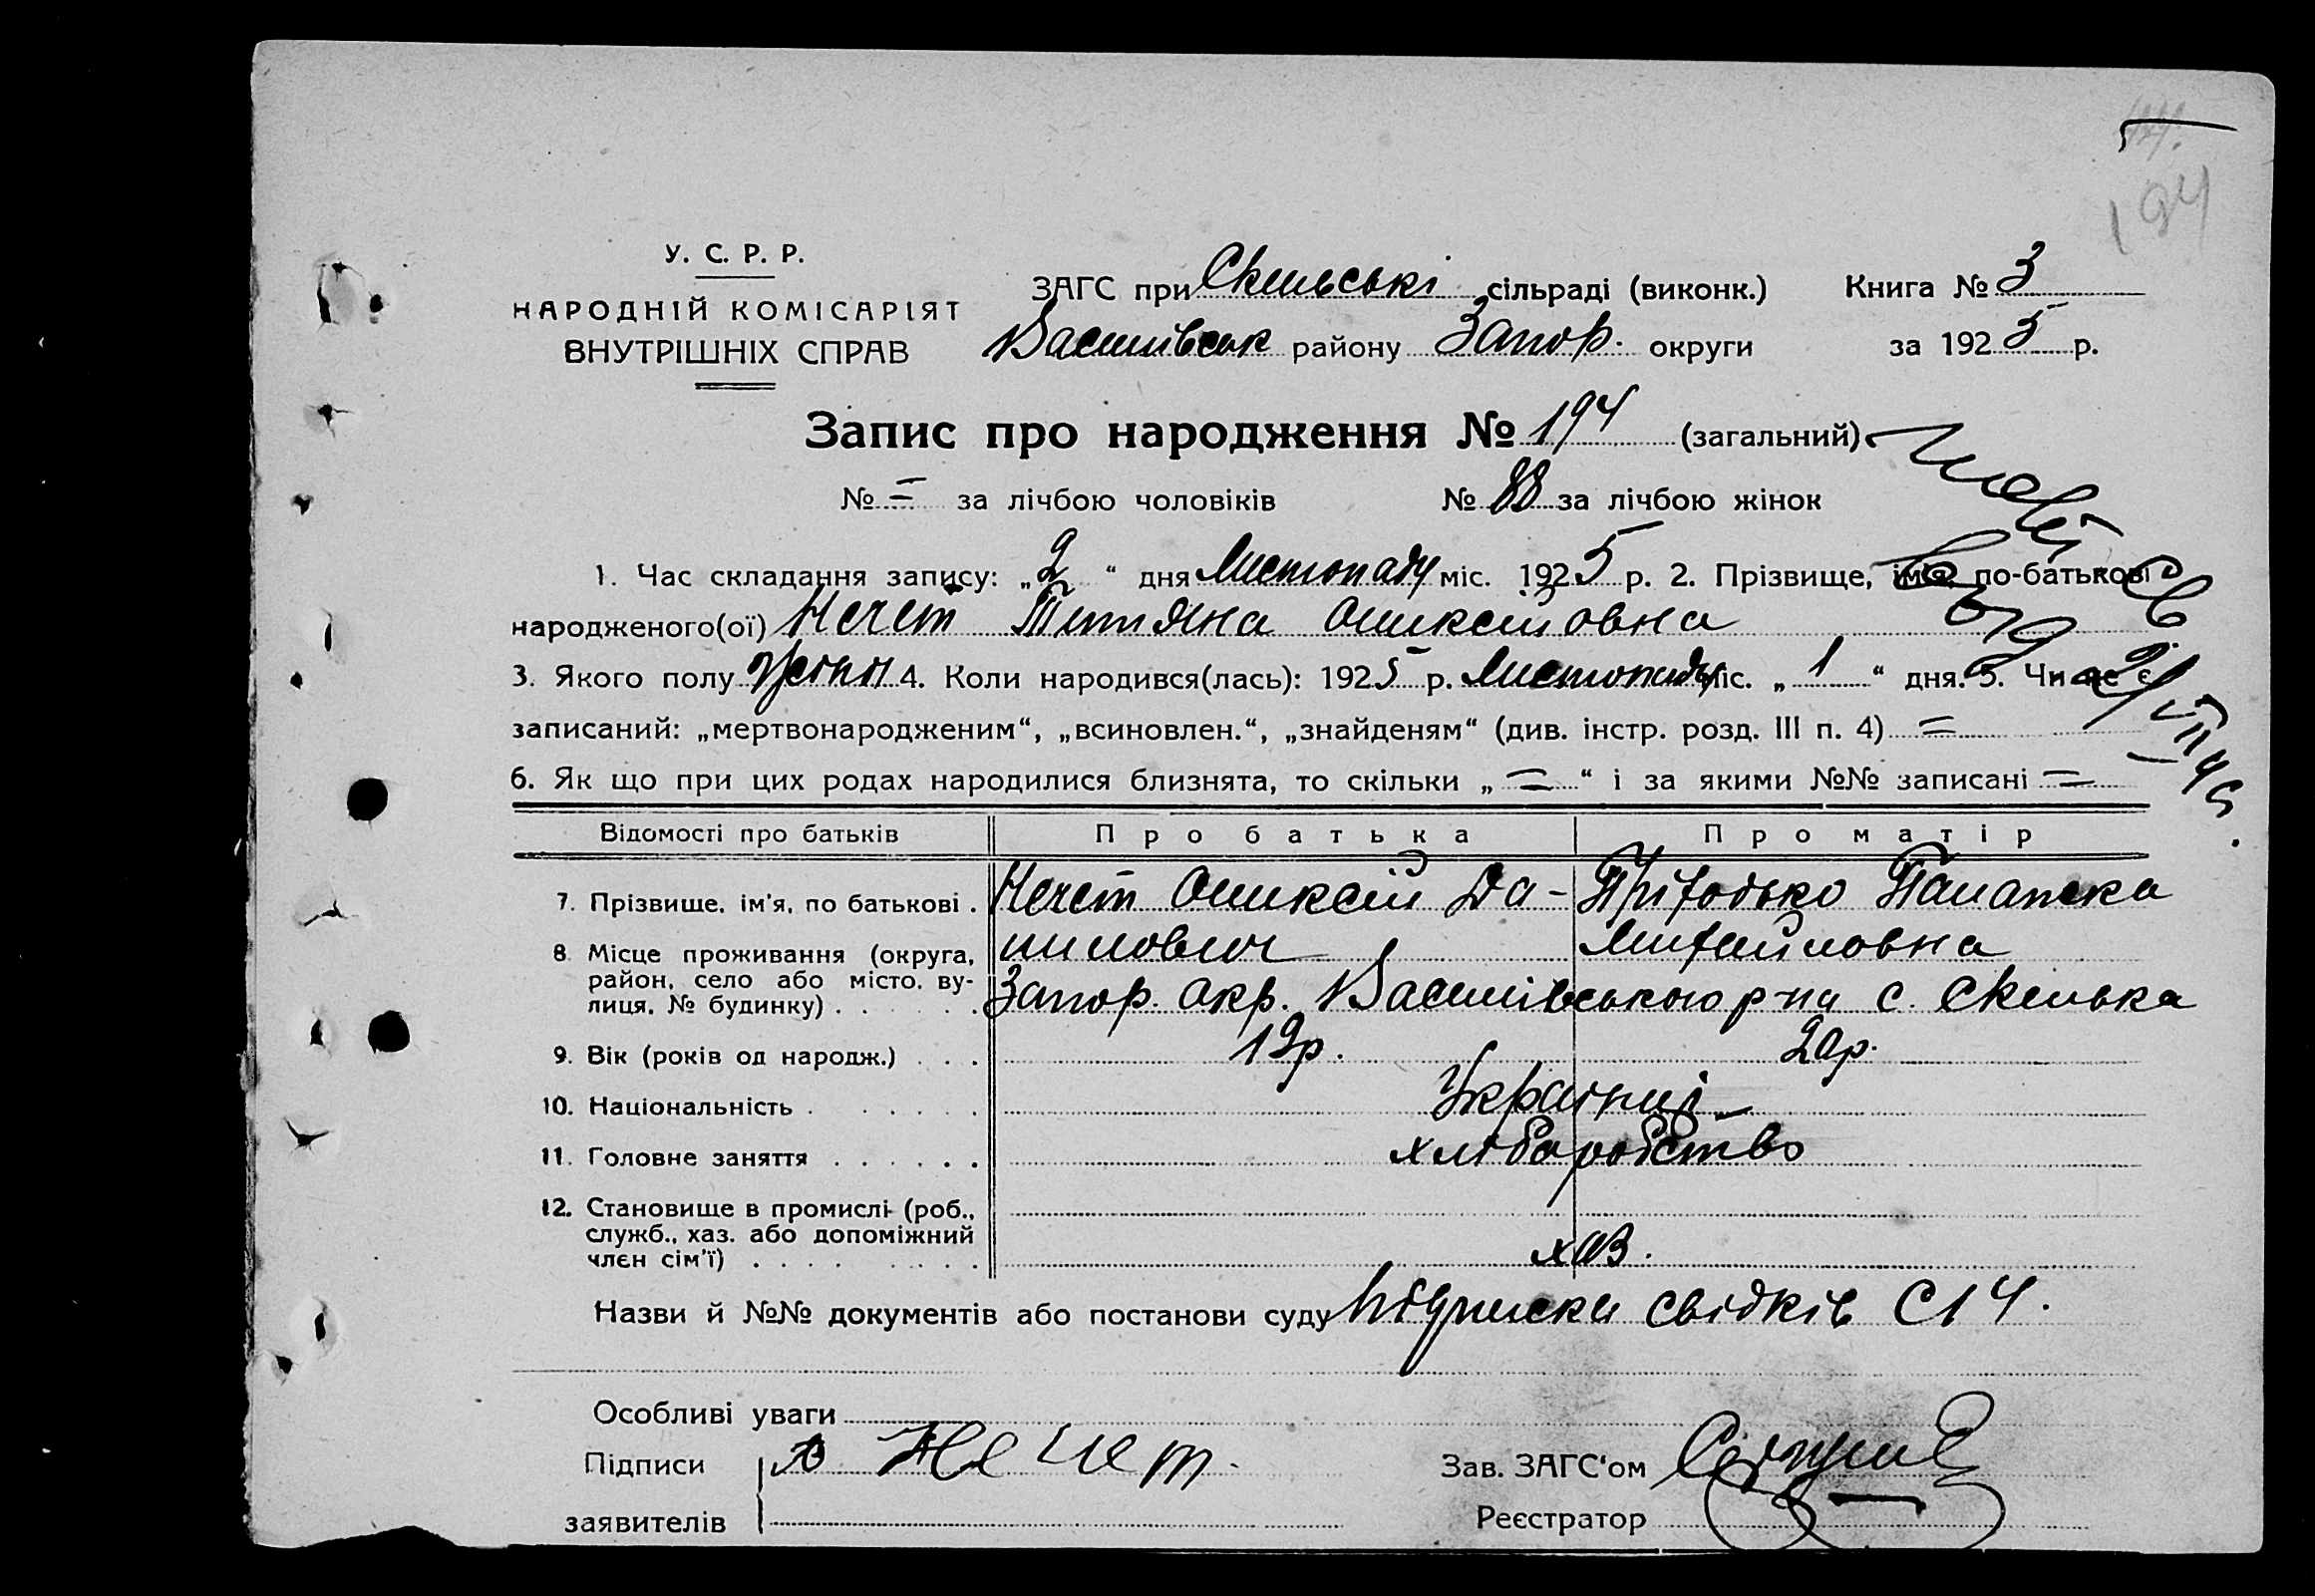 194
У. С. Р. Р.
НАРОДНІЙ КОМІСАРІЯТ
ВНУТРІШНІХ СПРАВ
ЗАГС при Скельські сільраді (виконк.) Книга № 3
Василівськ району Запор. округи за 1925 р.
Запис про народження № 194 (загальний)
№ = за лічбою чоловіків № 88 за лічбою жінок
1. Час складання запису: „2“ дня Листопаду міс. 1925 р. 2. Прізвище, ім'я, по-батькові
народженого(ої) Нечет Тітяна Оликсіювна
3. Якого полу жіноч 4. Коли народився(лась): 1925 р. Листопаду міс. „1“ дня. 5. Чи не є
записаний: „мертвонародженим“, „всиновлен.“, „знайденям“ (див. інстр. розд. III п. 4) =
6. Як що при цих родах народилися близнята, то скільки „=“ і за якими №№ записані =
Відомості про батьків Про батька Про матір
7. Прізвище, ім'я, по батькові . Нечет Оликсій Да- Пріходько Палажка
нилович Михайловна
8 Місце проживання (округа,
район, село або місто, ву-
лиця, № будинку) . . . . . . Запор. окр. Василівського р-на с. Скелька
9. Вік (років од народж.) . . . 19р. 20р.
10. Національність . . . . . . Українці
11. Головне заняття . . . . . . хліборобство
12. Становище в промислі (роб.,
служб., хаз. або допоміжний
член сім'ї) . . . . . . . . хаз.
Назви й №№ документів або постанови суду Підписка свідків С14.
Особливі уваги
Підписи Нечет. Зав. ЗАГС‘ом
заявителів Реєстратор